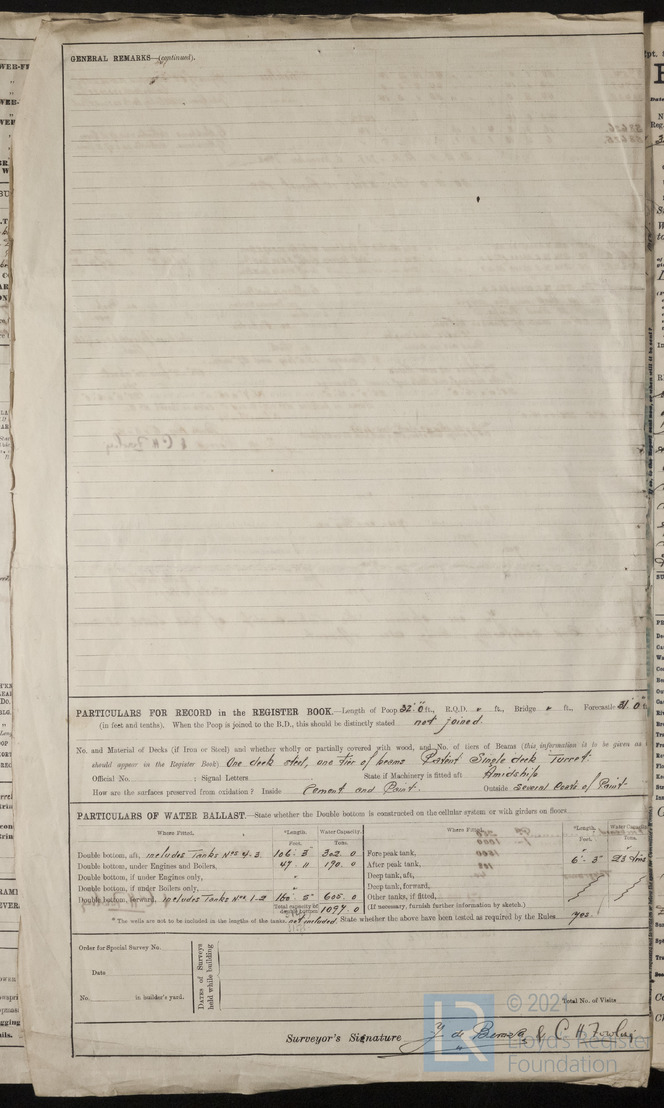 GENERAL REMARKS—(continued).
PARTICULARS FOR RECORD in the REGISTER BOOK.—Length of Poop 32'·0 ft., R.Q.D. " ft., Bridge " ft., Forecastle 31'·0 ft.
(in feet and tenths). When the Poop is joined to the B.D., this should be distinctly stated not joined.
No. and Material of Decks (if Iron or Steel) and whether wholly or partially covered with wood, and No. of tiers of Beams (this information is to be given as it
should appear in the Register Book) One deck steel, one tier of beams Patent Single deck Turret.
Official No. ; Signal Letters State if Machinery is fitted aft Amidships
How are the surfaces preserved from oxidation? Inside Cement and Paint. Outside Several Coats of Paint.
PARTICULARS OF WATER BALLAST.—State whether the Double bottom is constructed on the cellular system or with girders on floors
Where Fitted. *Length. Water Capacity. Where Fitted. *Length. Water Capacity.
Feet. Tons. Feet. Tons.
Double bottom, aft, includes Tanks Nos 4-3 106·3 302·0 Fore peak tank,
Double bottom, under Engines and Boilers, 47·11 190·0 After peak tank, 6'·3" 23 tons
Double bottom, if under Engines only, " Deep tank, aft,
Double bottom, if under Boilers only, Deep tank, forward,
Double bottom, forward, includes Tanks Nos 1-2 160·5 605·0 Other tanks, if fitted,
Total capacity of double bottom 1097·0 (If necessary, furnish further information by sketch.)
* The wells are not to be included in the lengths of the tanks. not included. State whether the above have been tested as required by the Rules Yes.
Order for Special Survey No.
Date
No. in builder's yard.
DATES of Surveys held while building
Total No. of Visits
Surveyor's Signature & C. H. Fowling
© 2021
Lloyd's Register
Foundation